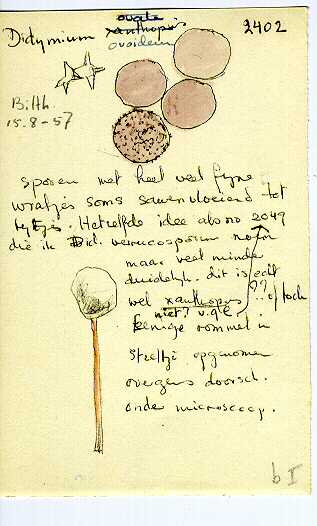 ovale
Didymium xanthopus 2402
ovoideum
Bilth
15.8-57
sporen met heel veel fijne
wratjes soms samenvloeiend tot
rijtjes. Hetzelfde idee als no 2049
die ik Did. verrucosporum noem
maar veel minder
duidelijk. dit is echt
wel xanthopus ?? of toch
niet? v.g.l.
Eenige rommel in
steeltje opgenomen
overigens doorsch.
onder microscoop.
b I